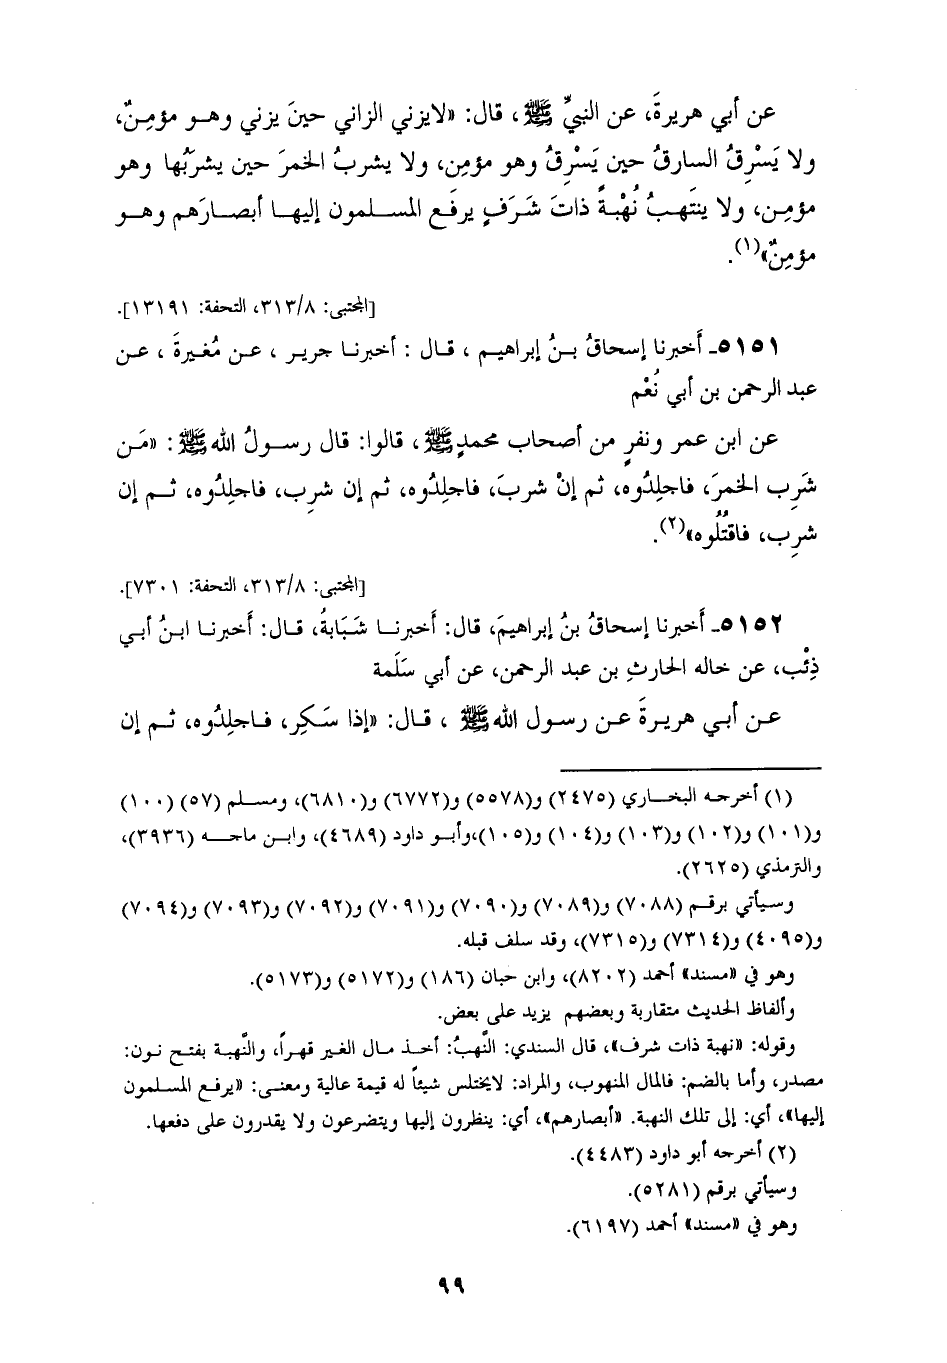 عن أبي هريرةَ، عن النبيِّ ﷺ، قال: «لايزني الزاني حينَ يزني وهو مؤمِنٌ،
ولا يَسْرِقُ السارقُ حين يَسْرِقُ وهو مؤمِن، ولا يشربُ الخمرَ حين يشرَبُها وهو
مؤمِن، ولا ينتَهِبُ نُهْبةً ذاتَ شَرَفٍ يرفَع المسلمون إليها أبصارَهم وهو
مؤمِنٌ»(١).
[المجتبى: ٣١٣/٨، التحفة: ١٣١٩١].
٥١٥١ـ أَخبرنا إسحاقُ بنُ إبراهيم ، قال : أخبرنا جرير ، عن مُغيرةَ ، عن
عبد الرحمن بن أبي نُعْم
عن ابن عمر ونفرٍ من أصحاب محمدٍ ﷺ، قالوا: قال رسولُ الله ﷺ: «مَن
شَرِب الخمرَ، فاجلِدُوه، ثم إنْ شربَ، فاجلِدُوه، ثم إن شرِب، فاجلِدُوه، ثم إن
شرِب، فاقتُلُوه»(٢).
[المجتبى: ٣١٣/٨، التحفة: ٧٣٠١].
٥١٥٢ـ أَخبرنا إسحاقُ بنُ إبراهيمَ، قال: أَخبرنا شَبَابةُ، قال: أَخبرنا ابنُ أبي
ذِئْب، عن خاله الحارثِ بن عبد الرحمن، عن أبي سَلَمة
عن أبي هريرةَ عن رسول الله ﷺ ، قال: «إذا سَكِر، فاجلِدُوه، ثم إن
(١) أخرجه البخاري (٢٤٧٥) و(٥٥٧٨) و(٦٧٧٢) و(٦٨١٠)، ومسلم (٥٧) (١٠٠)
و(١٠١) و(١٠٢) و(١٠٣) و(١٠٤) و(١٠٥)،وأبو داود (٤٦٨٩)، وابن ماجه (٣٩٣٦)،
والترمذي (٢٦٢٥).
وسيأتي برقم (٧٠٨٨) و(٧٠٨٩) و(٧٠٩٠) و(٧٠٩١) و(٧٠٩٢) و(٧٠٩٣) و(٧٠٩٤)
و(٤٠٩٥) و(٧٣١٤) و(٧٣١٥)، وقد سلف قبله.
وهو في «مسند» أحمد (٨٢٠٢)، وابن حبان (١٨٦) و(٥١٧٢) و(٥١٧٣).
وألفاظ الحديث متقاربة وبعضهم يزيد على بعض.
وقوله: «نهبة ذات شرف»، قال السندي: النَّهبُ: أخذ مال الغير قهراً، والنَّهبة بفتح نون:
مصدر، وأما بالضم: فالمال المنهوب، والمراد: لايختلس شيئاً له قيمة عالية ومعنى: «يرفع المسلمون
إليها»، أي: إلى تلك النهبة. «أبصارهم»، أي: ينظرون إليها ويتضرعون ولا يقدرون على دفعها.
(٢) أخرجه أبو داود (٤٤٨٣).
وسيأتي برقم (٥٢٨١).
وهو في «مسند» أحمد (٦١٩٧).
٩٩